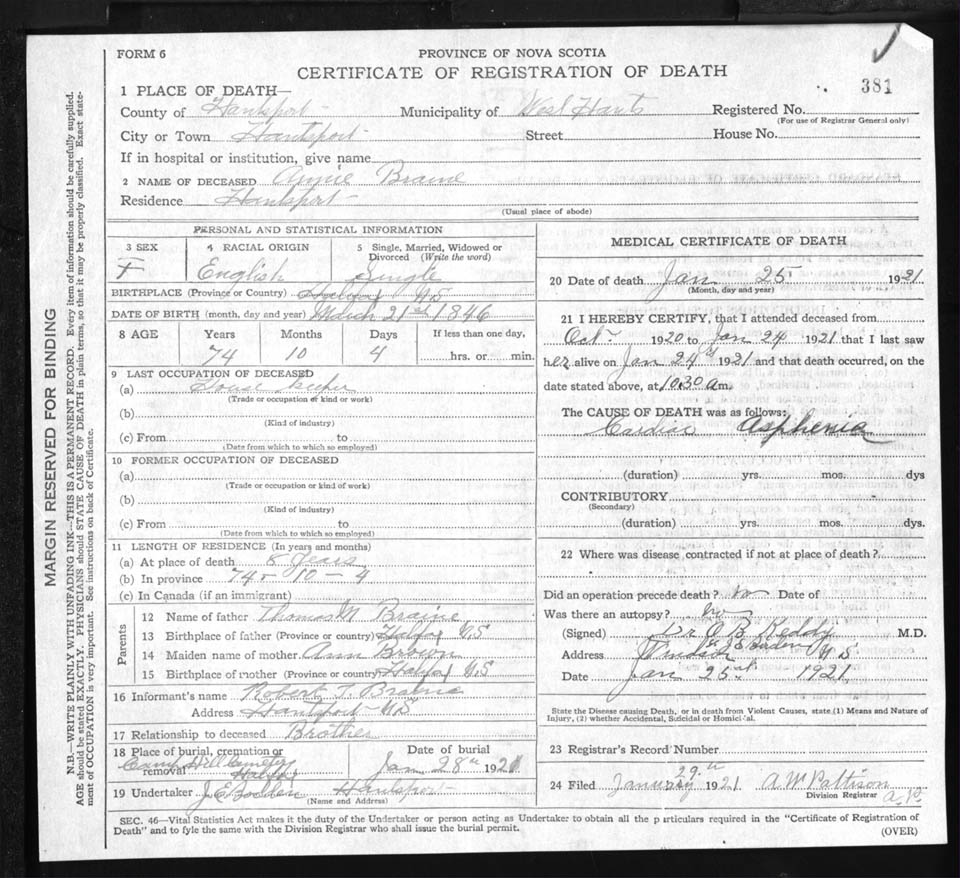 FORM 6
PROVINCE OF NOVA SCOTIA
CERTIFICATE OF REGISTRATION OF DEATH
381
1 PLACE OF DEATH—
County of Hantsport Municipality of West Hants Registered No.
(For use of Registrar General only)
City or Town Hantsport Street House No.
If in hospital or institution, give name
2 NAME OF DECEASED Annie Braine
Residence Hantsport
(Usual place of abode)
PERSONAL AND STATISTICAL INFORMATION
3 SEX 4 RACIAL ORIGIN 5 Single, Married, Widowed or Divorced (Write the word)
F English Single
BIRTHPLACE (Province or Country) Halifax N.S
DATE OF BIRTH (month, day and year) March 21st 1846
8 AGE Years Months Days If less than one day,
74 10 4 hrs. or min.
9 LAST OCCUPATION OF DECEASED
(a) House keeper
(Trade or occupation of kind or work)
(b)
(Kind of industry)
(c) From to
(Date from which to which so employed)
10 FORMER OCCUPATION OF DECEASED
(a)
(Trade or occupation or kind of work)
(b)
(Kind of industry)
(c) From to
(Date from which to which so employed)
11 LENGTH OF RESIDENCE (In years and months)
(a) At place of death 8 years
(b) In province 74 - 10 - 4
(c) In Canada (if an immigrant)
Parents
12 Name of father Thomas N Braine
13 Birthplace of father (Province or country) Halifax N.S
14 Maiden name of mother Ann Brown
15 Birthplace of mother (Province or country) Halifax N.S
16 Informant's name Robert T. Braine
Address Hantsport N.S
17 Relationship to deceased Brother
18 Place of burial, cremation or removal Camp Hill Cemetery Halifax
Date of burial Jan 28th 1921
19 Undertaker J E Borden Hantsport
(Name and Address)
MEDICAL CERTIFICATE OF DEATH
20 Date of death Jan 25 1921
(Month, day and year)
21 I HEREBY CERTIFY, that I attended deceased from
Oct. 1920 to Jan 24 1921 that I last saw
her alive on Jan 24th 1921 and that death occurred, on the
date stated above, at 10.30 a m.
The CAUSE OF DEATH was as follows:
Cardiac Asphenia
(duration) yrs. mos. dys
CONTRIBUTORY
(Secondary)
(duration) yrs. mos. dys.
22 Where was disease contracted if not at place of death?
Did an operation precede death? No Date of
Was there an autopsy? No
(Signed) Dr O B Keddy M.D.
Address Windsor N.S
Date Jan 25th 1921
State the Disease causing Death, or in death from Violent Causes, state (1) Means and Nature of
Injury, (2) whether Accidental, Suicidal or Homicidal.
23 Registrar's Record Number
24 Filed January 29th 1921 A W Pattison
Division Registrar
SEC. 46—Vital Statistics Act makes it the duty of the Undertaker or person acting as Undertaker to obtain all the particulars required in the "Certificate of Registration of
Death" and to fyle the same with the Division Registrar who shall issue the burial permit.
(OVER)
MARGIN RESERVED FOR BINDING
N.B.—WRITE PLAINLY WITH UNFADING INK—THIS IS A PERMANENT RECORD. Every item of information should be carefully supplied.
AGE should be stated EXACTLY. PHYSICIANS should STATE CAUSE OF DEATH in plain terms, so that it may be properly classified. Exact state-
ment of OCCUPATION is very important. See instructions on back of Certificate.